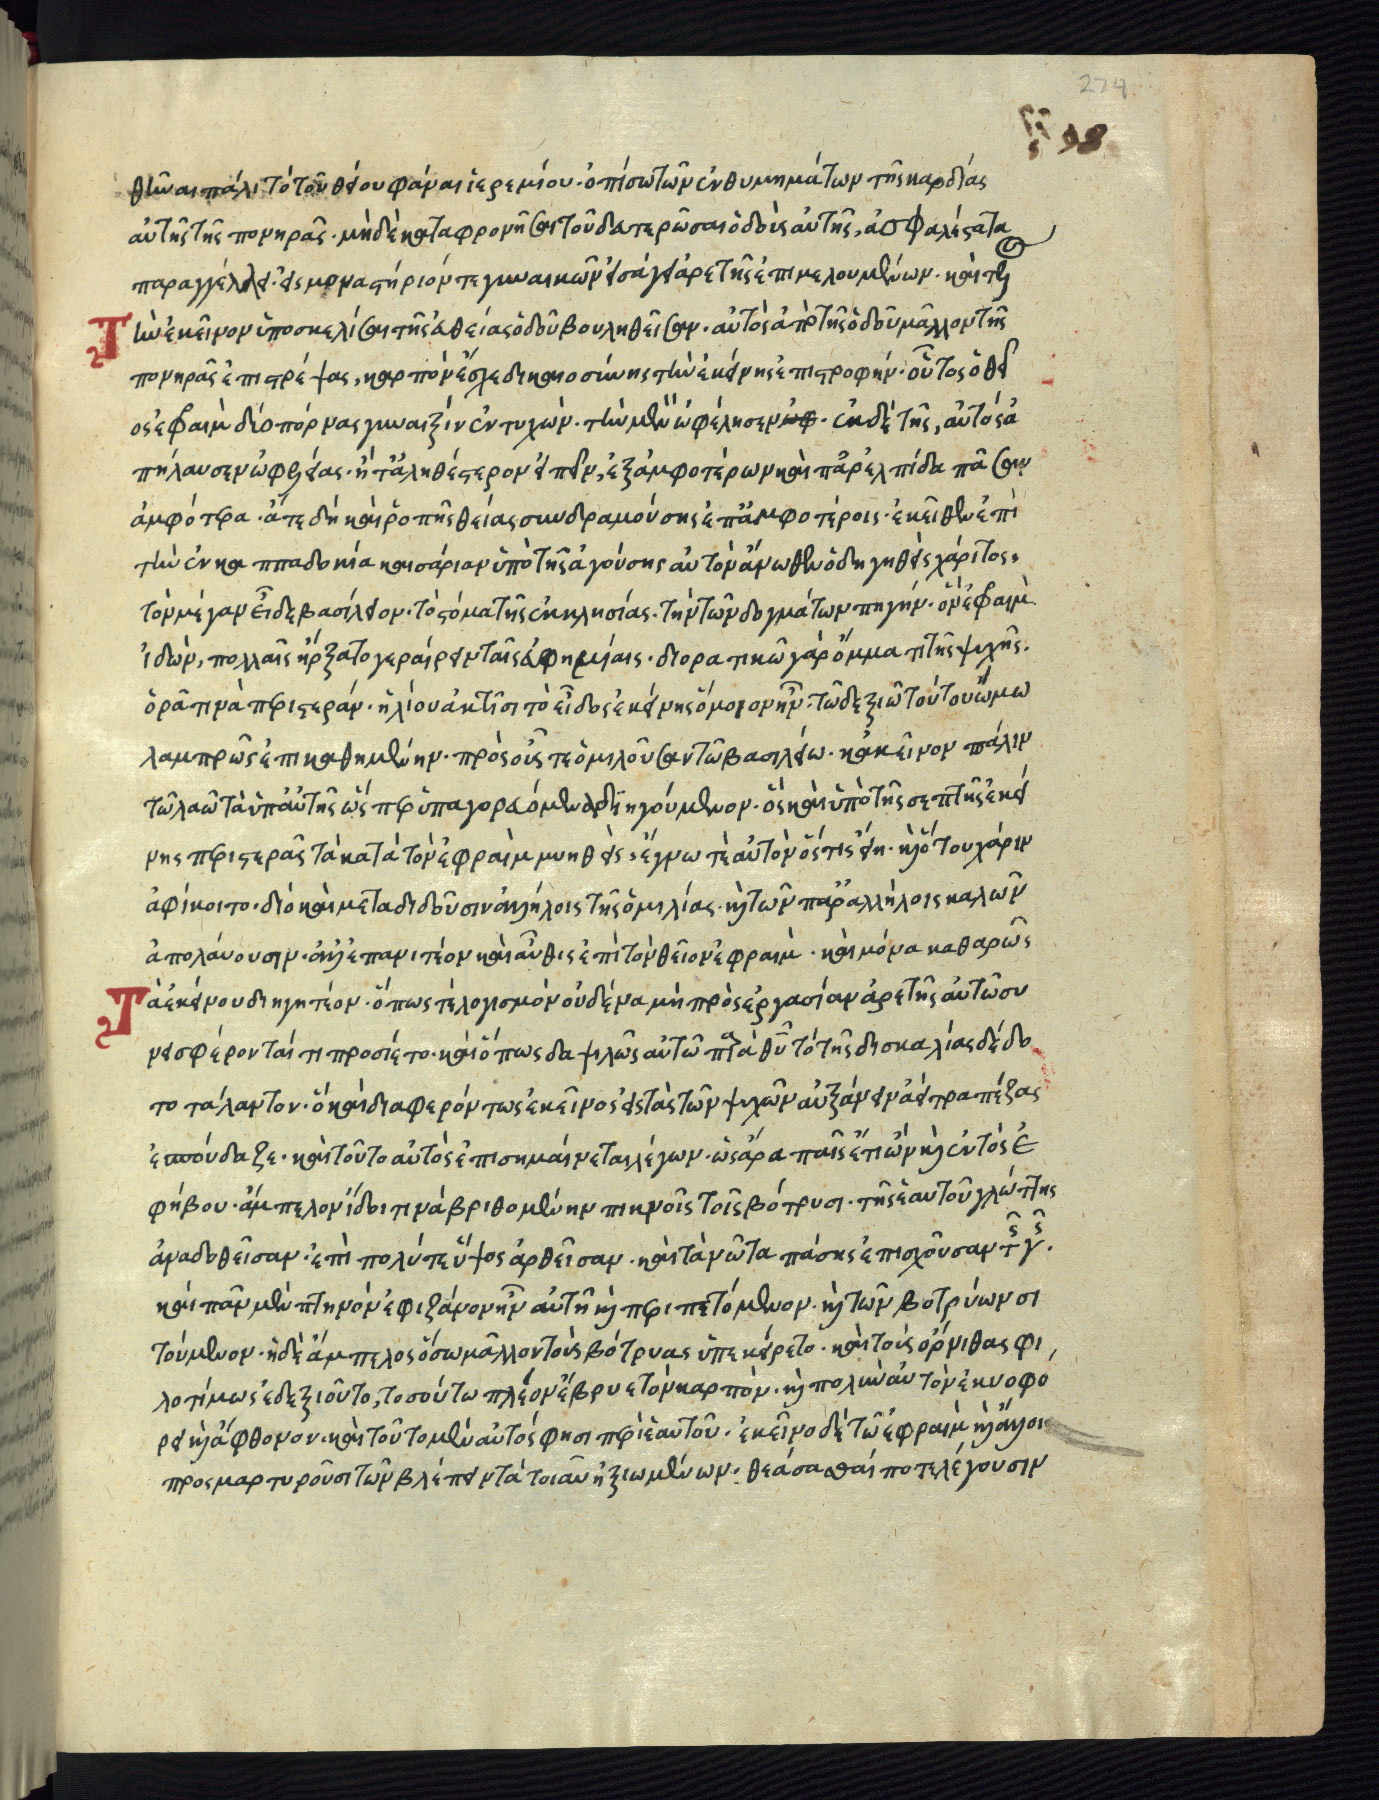 274
98
θῆναι πάλι τὸ τοῦ θείου φάναι ἱερεμίου· ὀπίσω τῶν ἐνθυμημάτων τῆς καρδίας
αὐτῆς τῆς πονηρᾶς· μηδὲ καταφρονῆσαι τοῦ διατερῶσαι ὁδοὺς αὐτῆς, ἀσφαλέστατα
παραγγέλλει· εἰς μοναστήριόν τε γυναικῶν εἰσάγει ἀρετῆς ἐπιμελουμένων· καὶ τὴν
Τὴν ἐκεῖνον ὑποσκελίσαι τῆς εὐθείας ὁδοῦ βουληθεῖσαν· αὐτὸς ἀπὸ τῆς ὁδοῦ μᾶλλον τῆς
πονηρᾶς ἐπιστρέψας, καρπὸν ἔσχε δικαιοσύνης τὴν ἐκείνης ἐπιστροφήν· οὗτος ὁ θεῖ
ος ἐφραὶμ δύο πόρναις γυναιξὶν ἐντυχὼν· τὴν μὲν ὠφέλησεν· ἐκ δέ τῆς, αὐτὸς ἀ
πήλαυσεν ὠφελείας· ἢ τἀληθέστερον εἰπεῖν, ἐξ ἀμφοτέρων καὶ παρ' ἐλπίδα πᾶσαν
ἀμφότερα· ἅτε δὴ καὶ ῥοπῆς θείας συνδραμούσης ἐπ' ἀμφοτέροις· ἐκεῖθεν ἐπὶ
τὴν ἐν καππαδοκία καισάριαν ὑπὸ τῆς ἀγούσης αὐτὸν ἄνωθεν ὁδηγηθεὶς χάριτος,
τὸν μέγαν εἶδε βασίλειον· τὸ στόμα τῆς ἐκκλησίας· τὴν τῶν δογμάτων πηγήν· ὃν ἐφραὶμ
ἰδών, πολλαῖς ἤρξατο γεραίρειν ταῖς εὐφημίαις· διορατικῶ γὰρ ὄμματι τῆς ψυχῆς·
ὁρᾶ τινὰ περιστεράν· ἡλίου ἀκτῖσι τὸ εἶδος ἐκείνης ὅμοιον ἦν· τῶ δεξιῶ τούτου ὤμω
λαμπρῶς ἐπικαθημένην· πρὸς οἷς τε ὁμιλοῦσαν τῶ βασιλείω· κἀκεῖνον πάλιν
τῶ λαῶ τὰ ὑπ' αὐτῆς ὥσπερ ὑπαγορευόμενα διηγούμενον· ὃς καὶ ὑπὸ τῆς σεπτῆς ἐκεί
νης περιστερᾶς τὰ κατὰ τὸν ἐφραὶμ μυηθεὶς, ἔγνω τὲ αὐτὸν ὅστις εἴη· καὶ ὅτου χάριν
ἀφίκοιτο· διὸ καὶ μεταδιδοῦσιν ἀλλήλοις τῆς ὁμιλίας· καὶ τῶν παρ' ἀλλήλοις καλῶν
ἀπολάυουσιν· ἀλλ' ἐπανιτέον καὶ αὖθις ἐπὶ τὸν θεῖον ἐφραὶμ· καὶ μόνα καθαρῶς
Τὰ ἐκείνου διηγητέον· ὅπως τὲ λογισμὸν οὐδένα μὴ πρὸς ἐργασίαν ἀρετῆς αὐτῶ συ
νεισφέροντά τι προσίετο· καὶ ὅπως δαψιλῶς αὐτῶ παρὰ θεοῦ τὸ τῆς διδασκαλίας δέδο
το τάλαντον· ὃ καὶ διαφερόντως ἐκεῖνος εἰς τὰς τῶν ψυχῶν αὐξάνειν ἀεὶ τραπέζας
ἐσπούδαζε· καὶ τοῦτο αὐτὸς ἐπισημαίνεται λέγων· ὡς ἄρα παῖς ἔτι ὢν καὶ ἐντὸς ἐ
φήβου· ἄμπελον ἴδοι τινὰ βριθομένην πυκνοῖς τοῖς βότρυσι· τῆς ἑαυτοῦ γλώττης
ἀναδοθεῖσαν· ἐπὶ πολύ τε ὕψος ἀρθεῖσαν· καὶ τὰ νῶτα πάσης ἐπισχοῦσαν τῆς γῆς·
καὶ πᾶν μὲν πτηνὸν ἐφιζάνον ἦν αὐτῆ καὶ περιπετόμενον· καὶ τῶν βοτρύων σι
τούμενον· ἡ δὲ ἄμπελος ὅσω μᾶλλον τοὺς βότρυας ὑπεκείρετο· καὶ τοὺς ὄρνιθας φι
λοτίμως ἐδεξιοῦτο, τοσούτω πλέον ἔβρυε τὸν καρπὸν· καὶ πολὺν αὐτὸν ἐκυοφό
ρει καὶ ἄφθονον· καὶ τοῦτο μὲν αὐτός φησι περὶ ἑαυτοῦ· ἐκεῖνο δέ τῶ ἐφραὶμ καὶ ἄλλοι
προσμαρτυροῦσι τῶν βλέπειν τὰ τοιαῦτα ἠξιωμένων· θεάσασθαί ποτε λέγουσιν